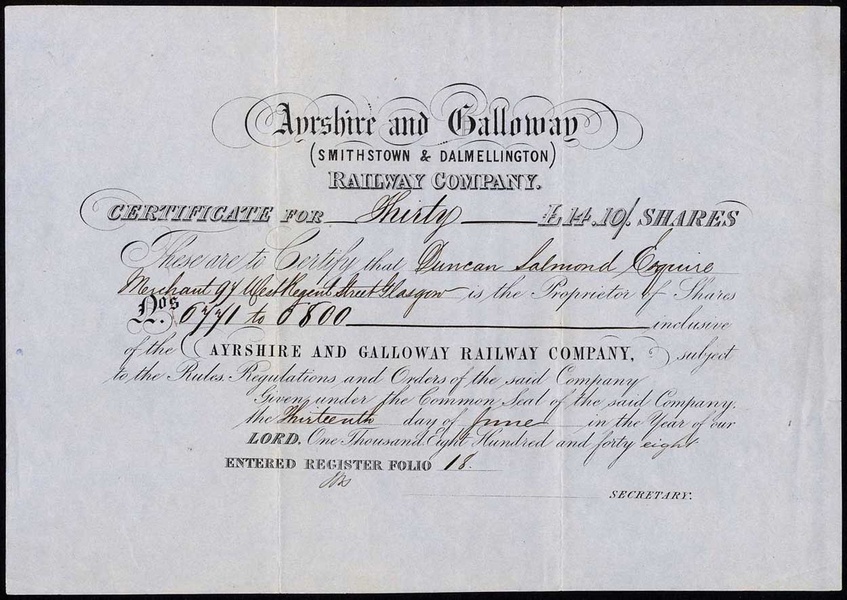 Ayrshire and Galloway
(SMITHSTOWN & DALMELLINGTON)
RAILWAY COMPANY.
CERTIFICATE FOR Thirty £14.10/. SHARES
These are to Certify that Duncan Salmond Esquire
Merchant 97 West Regent Street Glasgow is the Proprietor of Shares
Nos. 6771 to 6800 inclusive
of the AYRSHIRE AND GALLOWAY RAILWAY COMPANY, subject
to the Rules. Regulations and Orders of the said Company
Given under the Common Seal of the said Company.
the Thirteenth day of June in the Year of our
LORD. One Thousand Eight Hundred and forty eight
ENTERED REGISTER FOLIO 18.
SECRETARY.